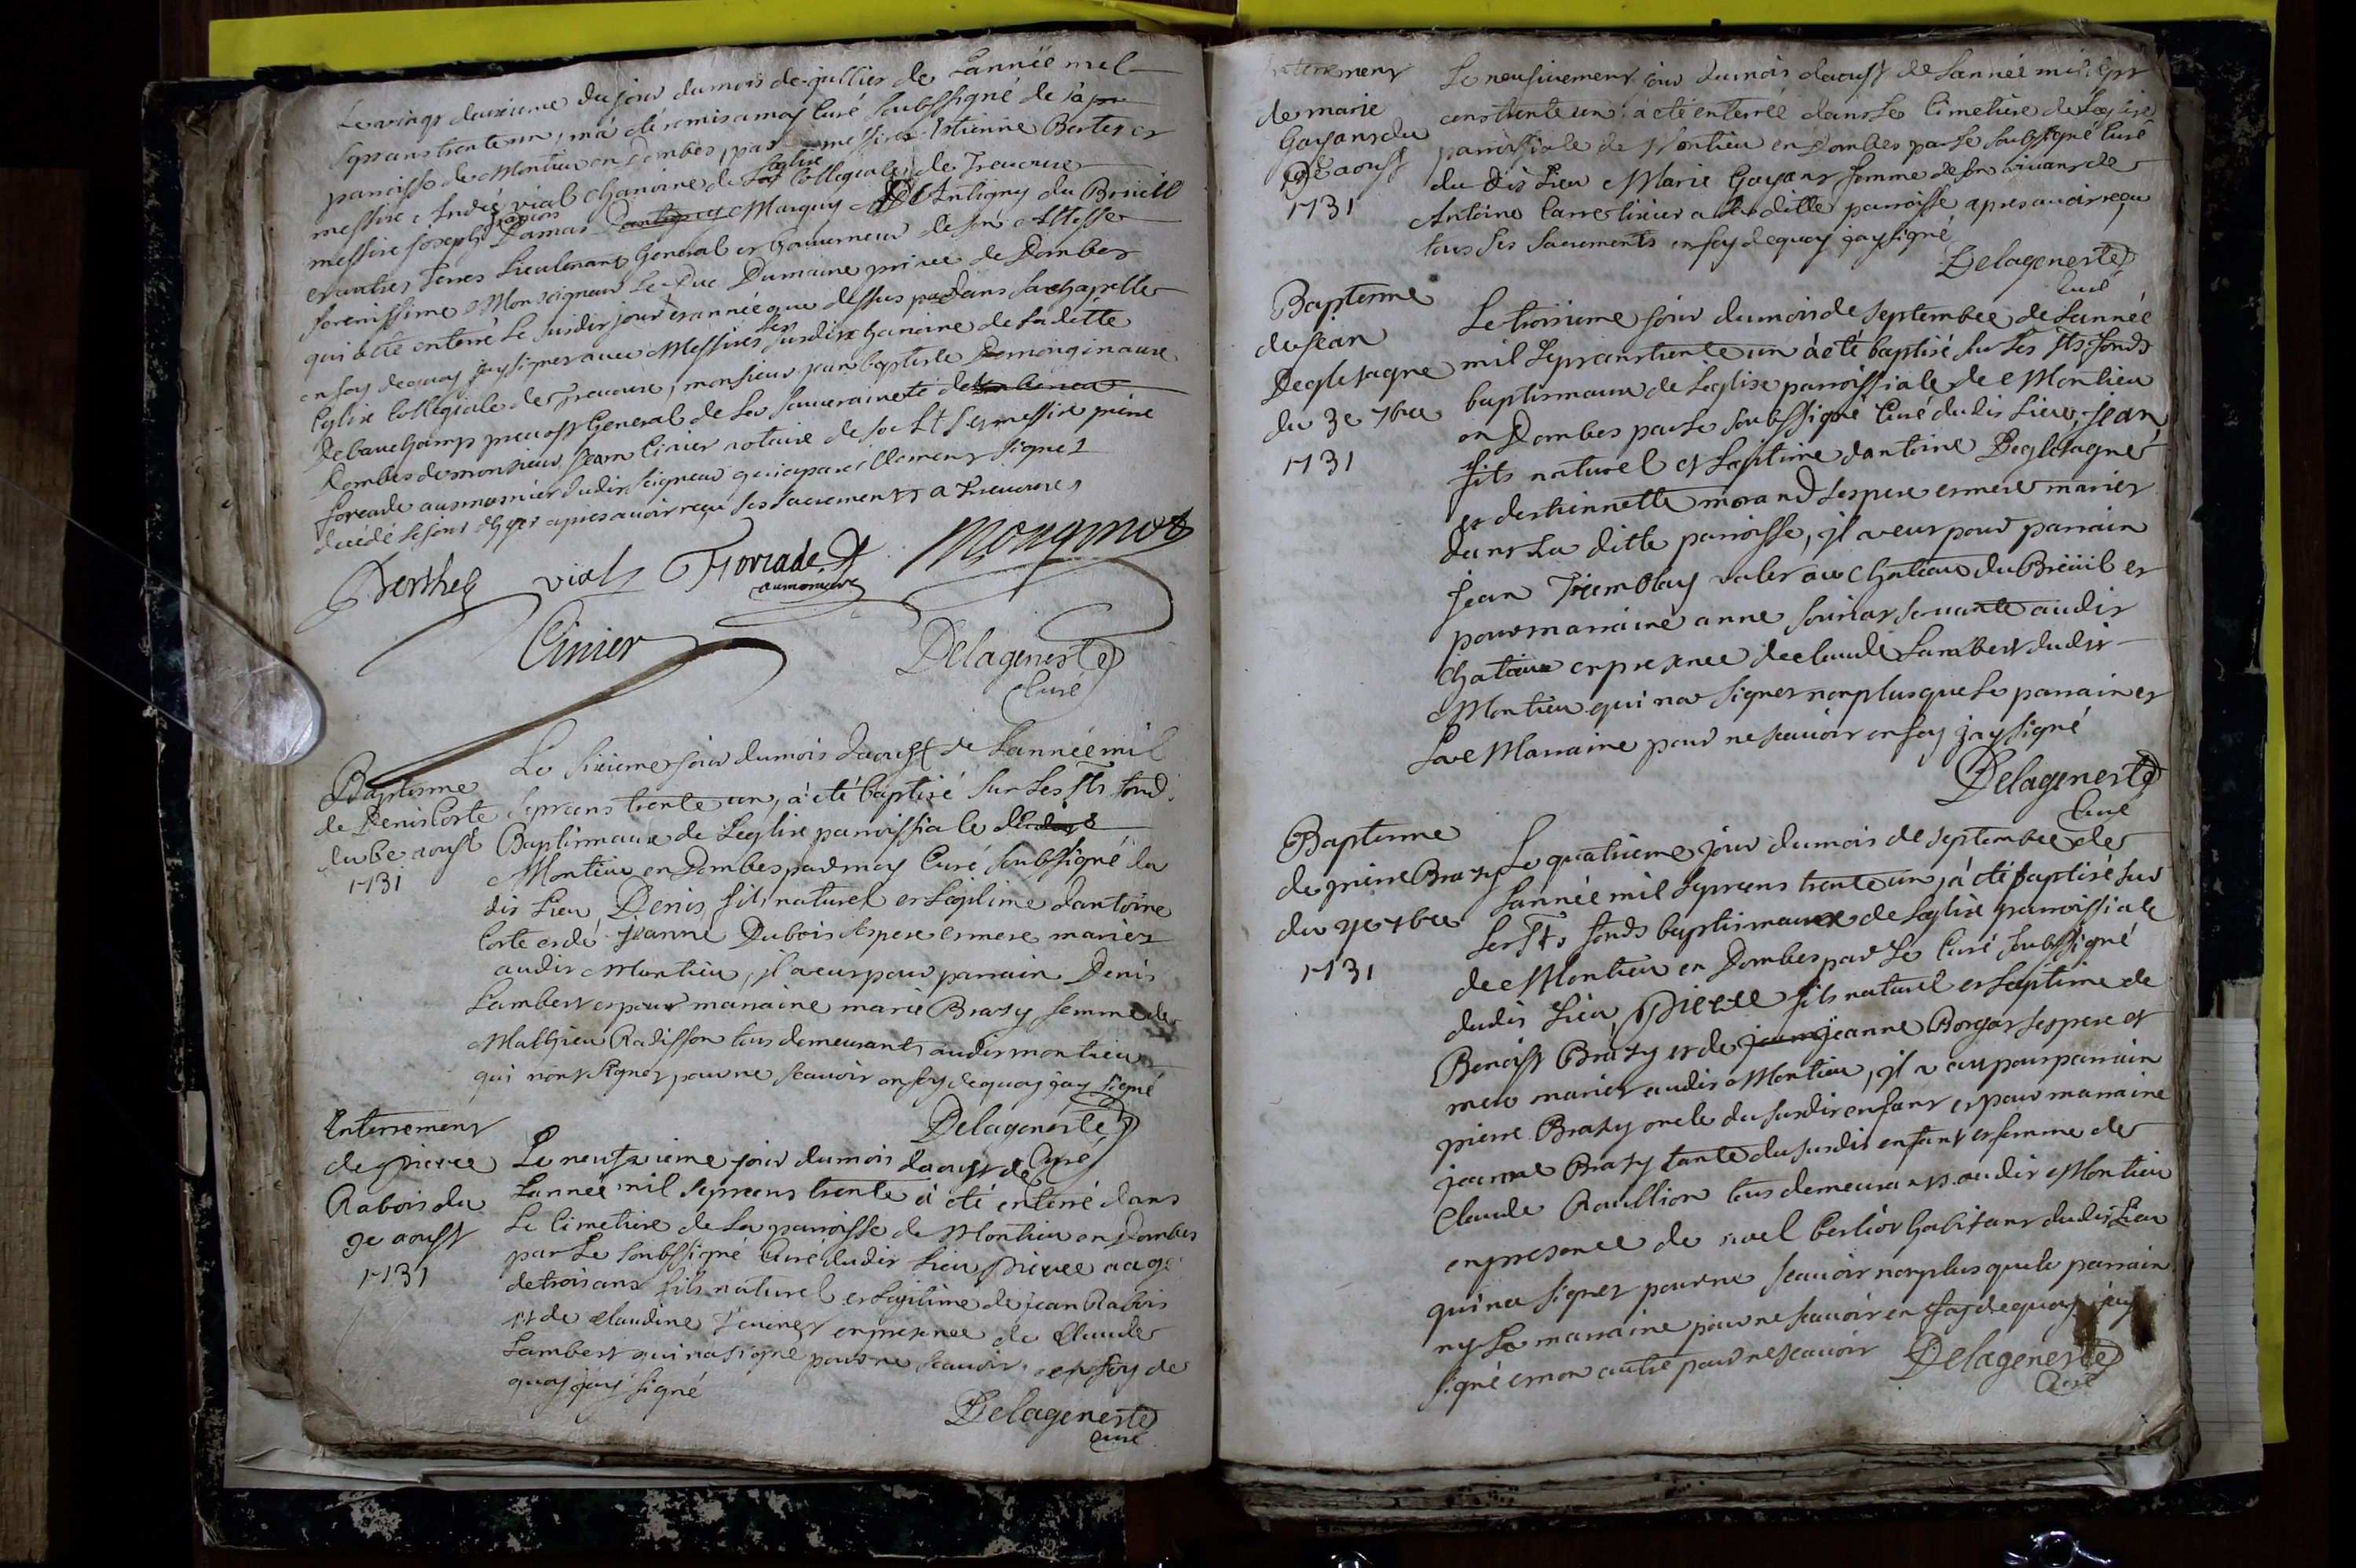 Le vingt deuxieme du jour du mois de juillier de L'année mil
sept cens trente un, m'a été remis a moy Curé soubssigné de la
paroisse de Montieu en Dombes, par messires Estienne Bertet et
messire André vial Chanoine de Leglise Collegiale de Trevoux
messire joseph françois Damas Marquy D'Antigny du Breüill
et autres Terres Lieutenant General et Gouverneur de Son Altesse
serenissime Monseigneur Le Duc Dumaine prince de Dombes
qui à été enterré le susdit jour et année que dessus dans sa chapelle
en foy dequoy j'ay signer avec Messires les susdits chanoine de saditte
Eglise Collegiale de Trevoux, monsieur jean baptiste monginause
Debauchamp prevost General de La souveraineté de
Dombes de monsieur jean Cinier notaire de
forcade ausmonier dudit seigneur signez
decédé apres avoir reçu ses sacrements a Trevoux,
Berthet vial Forcade Monginot
aumonier
Cinier Delageneste
Curé
Baptisme
de Denis Corte
du 6e aoust
1731
Le sixieme jour du mois daoust de L'année mil
sept cens trente un, à été baptisé sur Les Sts fond
Baptismaux de Leglise paroissiale
Montieu en Dombes par moy Curé soubssigné du
dit Lieu, Denis, fils naturel et Legitime dantoine
Corte et de Jeanne Dubois ses pere et mere mariez
audit Montieu, il a eut pour parrain Denis
Lambert et pour marraine marie Brazy femme de
Mathieu Radisson tous demeurants audit montieu
qui n'ont signer pour ne scavoir en foy dequoy j'ay signé
Delageneste
Curé
Enterrement
de pierre
Rabois du
9e aoust
1731
Le neufvieme jour du mois daoust de
L'année mil sept cens trente à été enterré dans
Le Cimetiere de La paroisse de Montieu en Dombes
par Le soubssigné Curé dudit Lieu pierre aagé
de trois ans fils naturel et Legitime de jean Rabois
et de Claudine en presence de Claude
Lambert qui n'a signé pour ne scavoir, en foy de
quoy j'ay signé
Delageneste
Curé
Enterrement
de marie
Goyant du
aoust
1731
Le neufvieme jour du mois daoust de L'année mil sept
cens trente un à eté enterrée dans Le Cimetiere de Leglise
paroissiale de Montieu en Dombes par Le soubssigné Curé
du dit Lieu Marie Goyant femme de son vivant de
Antoine a la ditte paroisse apres avoir reçu
tous ses sacrements en foy dequoy j'ay signé
Delageneste
Curé
Baptisme
de jean
Deglesagne
du 3e 7bre
1731
Le troisieme jour du mois de septembre de L'année
mil sept cens trente un à eté baptisé sur Les Sts fonds
baptismaux de Leglise paroissiale de Montieu
en Dombes par Le soubssigné Curé dudit Lieu, jean
fils naturel et Legitime dantoine Deglesagne
et destiennette morand ses pere et mere mariez
dans La ditte paroisse, il a eut pour parrain
jean Tremblay valet au Chateau du Breüil et
pour marraine anne servante audit
Chateau en presence de claude Lambert dudit
Montieu qui na signer non plus que Le parrain et
La Marraine pour ne scavoir en foy j'ay signé
Delageneste
Curé
Baptisme
de pierre Brazy
du 4e 7bre
1731
Le quatrieme jour du mois de septembre de
L'année mil sept cens trente un, à été baptisé sur
Les Sts fonds baptismaux de Leglise paroissiale
de Montieu en Dombes par Le Curé soubssigné
dudit Lieu, pierre fils naturel et Legitime de
Benoist Brazy et de jeanne Borgat ses pere et
mere mariez audit Montieu, il a eut pour parrain
pierre Brazy oncle du susdit enfant et pour marraine
jeanne Brazy tante du susdit enfant et femme de
Claude Roullion tous demeurants audit Montieu
en presence de habitant dudit Lieu
qui na signer pour ne scavoir non plus que le parrain
ny La marraine pour ne scavoir en foy dequoy j'ay
signé non autre pour ne scavoir Delageneste
Curé